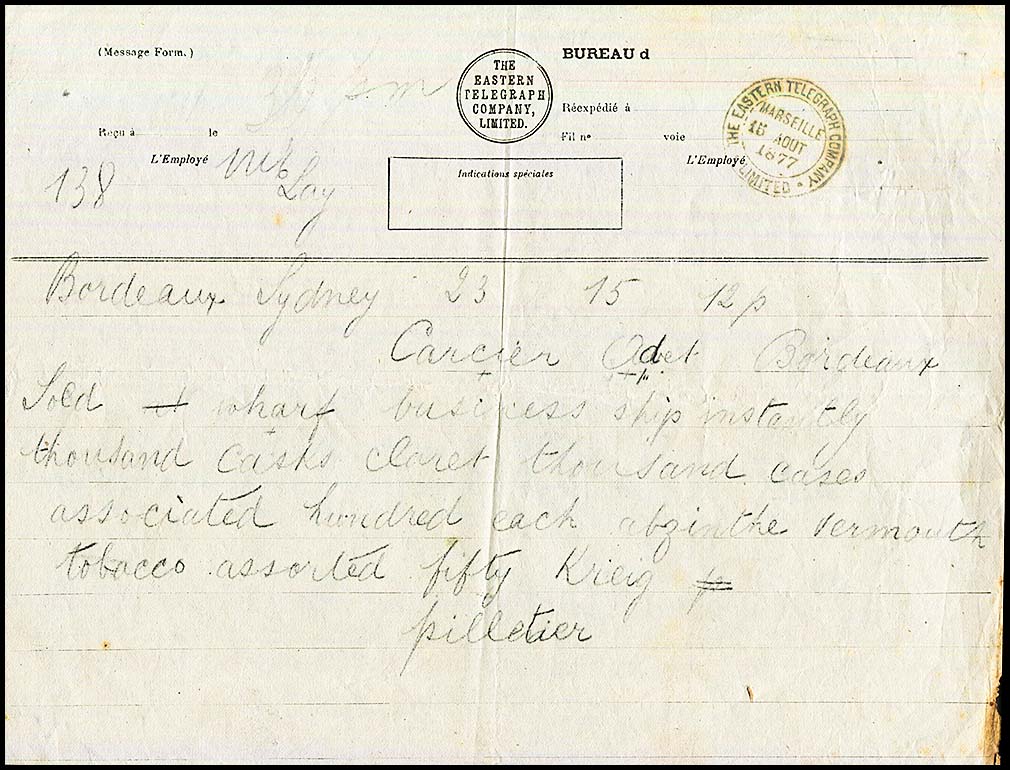 (Message Form.)
THE
EASTERN
TELEGRAPH
COMPANY,
LIMITED.
BUREAU d
Réexpédié à
Reçu à le
Fil nº voie
L'Employé
L'Employé
Indications spéciales
THE EASTERN TELEGRAPH COMPANY LIMITED
MARSEILLE
15 AOUT
1877
138
Bordeaux Sydney 23 15 12 p
Carcier Bordeaux
Sold wharf business ship instantly
thousand casks claret thousand cases
associated hundred each abzinthe vermouth
tobacco assorted fifty Krieig
pilletier